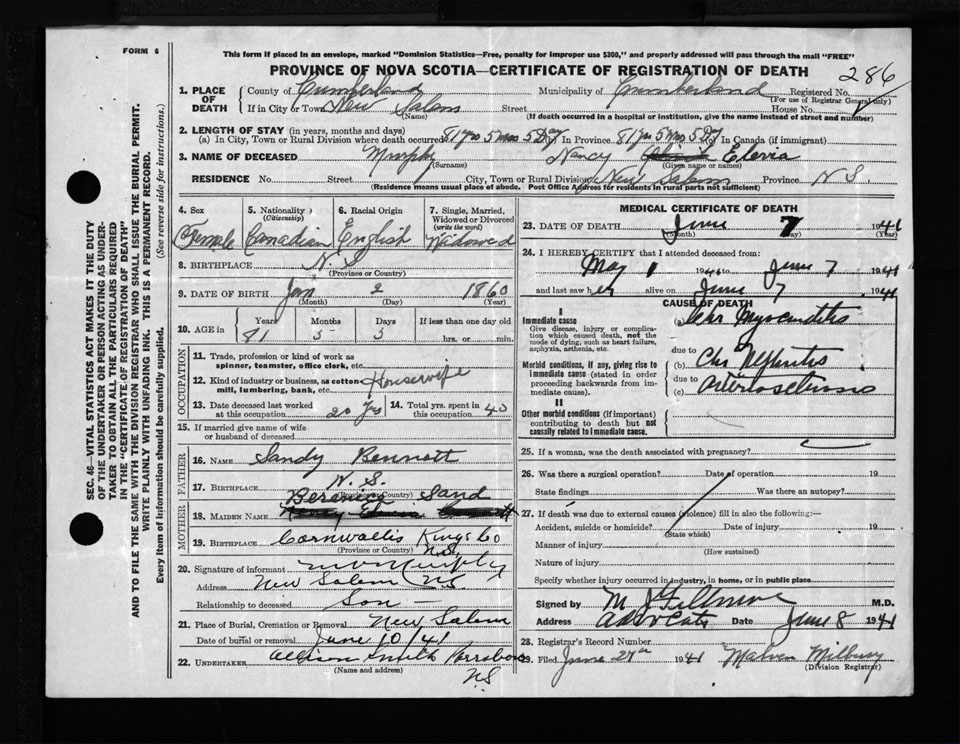 FORM 6
This form if placed in an envelope, marked "Dominion Statistics—Free, penalty for improper use $300," and properly addressed will pass through the mail "FREE"
PROVINCE OF NOVA SCOTIA—CERTIFICATE OF REGISTRATION OF DEATH
286
1. PLACE OF DEATH
County of Cumberland Municipality of Cumberland Registered No.
(For use of Registrar General only)
If in City or Town New Salem Street House No.
(Name) (If death occurred in a hospital or institution, give the name instead of street and number)
2. LENGTH OF STAY (in years, months and days)
(a) In City, Town or Rural Division where death occurred 81 Yrs 5 Mos 5 Day In Province 81 Yrs 5 Mos 5 Dy In Canada (if immigrant)
3. NAME OF DECEASED Murphy Nancy Elevia
(Surname) (Given name or names)
RESIDENCE No. Street City, Town or Rural Division New Salem Province N S.
(Residence means usual place of abode. Post Office Address for residents in rural parts not sufficient)
4. Sex
Female
5. Nationality (Citizenship)
Canadian
6. Racial Origin
English
7. Single, Married, Widowed or Divorced (write the word)
Widowed
8. BIRTHPLACE N. S
(Province or Country)
9. DATE OF BIRTH Jan 2 1860
(Month) (Day) (Year)
10. AGE in Years Months Days If less than one day old
81 5 5 hrs. or min.
OCCUPATION
11. Trade, profession or kind of work as spinner, teamster, office clerk, etc.
12. Kind of industry or business, as cotton mill, lumbering, bank, etc. Housewife
13. Date deceased last worked at this occupation 20 Yrs
14. Total yrs. spent in this occupation 40
15. If married give name of wife or husband of deceased
FATHER
16. NAME Sandy Bennett
17. BIRTHPLACE N. S.
(Province or Country)
MOTHER
18. MAIDEN NAME Sand
19. BIRTHPLACE Cornwallis Kings Co
(Province or Country) N.S.
20. Signature of informant Murphy
Address New Salem NS
Relationship to deceased Son
21. Place of Burial, Cremation or Removal New Salem
Date of burial or removal June 10/41
22. UNDERTAKER Allison Smith Parrsboro
(Name and address) N.S
MEDICAL CERTIFICATE OF DEATH
23. DATE OF DEATH June 7 1941
(Month) (Day) (Year)
24. I HEREBY CERTIFY that I attended deceased from:
May 1 1941 to June 7 1941
and last saw her alive on June 7 1941
CAUSE OF DEATH
I
Immediate cause
Give disease, injury or complication which caused death, not the mode of dying, such as heart failure, asphyxia, asthenia, etc.
(a) Chr Myocarditis
due to
Morbid conditions, if any, giving rise to immediate cause (stated in order proceeding backwards from immediate cause).
(b) Chr Nephritis
due to
(c) Arteriosclerosis
II
Other morbid conditions (if important) contributing to death but not causally related to immediate cause.
25. If a woman, was the death associated with pregnancy?
26. Was there a surgical operation? Date of operation 19
State findings Was there an autopsy?
27. If death was due to external causes (violence) fill in also the following:—
Accident, suicide or homicide? Date of injury 19
(State which)
Manner of injury
(How sustained)
Nature of injury
Specify whether injury occurred in industry, in home, or in public place
Signed by M J Fillmore M.D.
Address Advocate Date June 8 1941
28. Registrar's Record Number
29. Filed June 27th 1941 Milbury
(Division Registrar)
SEC. 46—VITAL STATISTICS ACT MAKES IT THE DUTY
OF THE UNDERTAKER OR PERSON ACTING AS UNDERTAKER
TO OBTAIN ALL THE PARTICULARS REQUIRED
IN THE "CERTIFICATE OF REGISTRATION OF DEATH"
AND TO FILE THE SAME WITH THE DIVISION REGISTRAR WHO SHALL ISSUE THE BURIAL PERMIT.
WRITE PLAINLY WITH UNFADING INK. THIS IS A PERMANENT RECORD.
Every item of information should be carefully supplied. (See reverse side for instructions.)